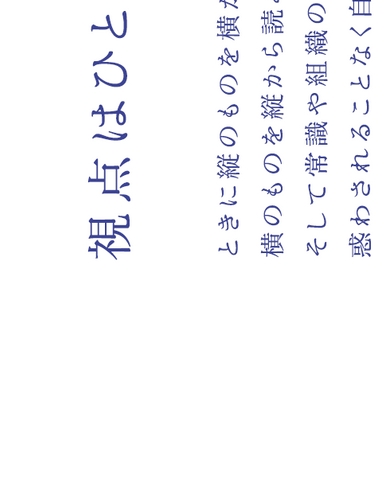 視点はひと
ときに縦のものを横か
横のものを縦から読
そして常識や組織の
惑わされることなく自